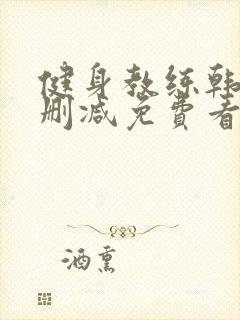 健身教练韩
删减免費看
酒熏